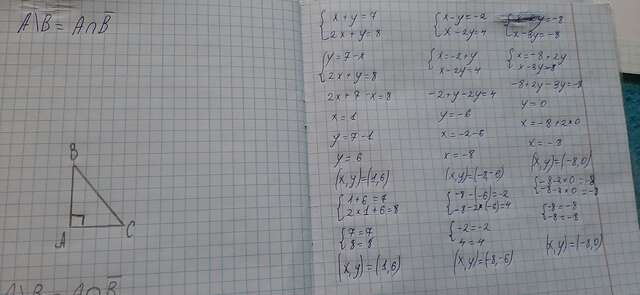 A\B = A∩B̅
B
A
C
A\B = A∩B̅
{x+y=7
2x+y=8
{y=7-x
2x+y=8
2x+7-x=8
x=1
y=7-1
y=6
(x,y)=(1,6)
{1+6=7
2×1+6=8
{7=7
8=8
(x,y)=(1,6)
{x-y=-2
x-2y=4
{x=-2+y
x-2y=4
-2+y-2y=4
y=-6
x=-2-6
x=-8
(x,y)=(-8,-6)
{-8-(-6)=-2
-8-2×(-6)=4
{-2=-2
4=4
(x,y)=(-8,-6)
=-8
x-3y=-8
{x=-8+2y
x-3y=-8
-8+2y-3y=-8
y=0
x=-8+2×0
x=-8
(x,y)=(-8,0)
{-8-2×0=-8
-8-3×0=-8
{-8=-8
-8=-8
(x,y)=(-8,0)